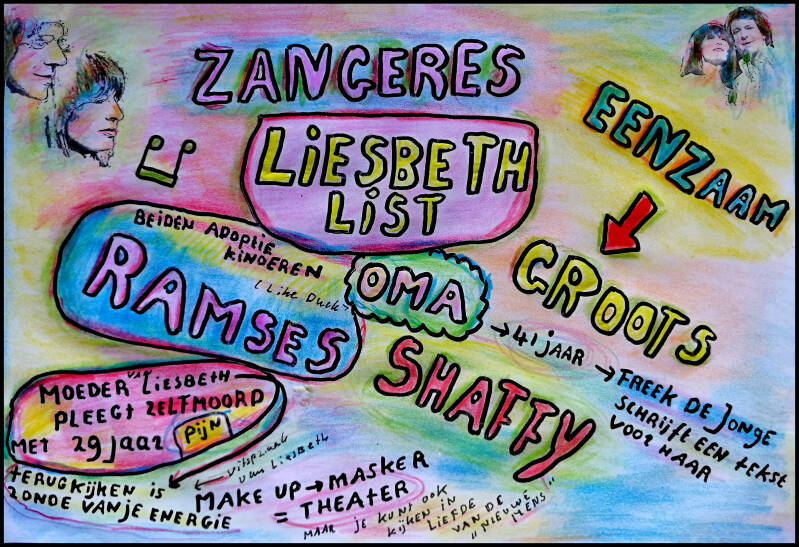 ZANGERES
LIESBETH
LIST
EENZAAM
GROOTS
BEIDEN ADOPTIE
KINDEREN
(Like Duck)
RAMSES
OMA
→ 41 JAAR → FREEK DE JONGE
SCHRIJFT EEN TEKST
VOOR HAAR
SHAFFY
MOEDER van LIESBETH
PLEEGT ZELFMOORD
MET 29 jaar
Pijn
uitspraak
van Liesbeth
TERUGKIJKEN is
ZONDE VAN JE ENERGIE
MAKE UP → MASKER
= THEATER
MAAR je KUNT OOK
KIJKEN IN LIEFDE DE
VAN DE
"NIEUWE
MENS"